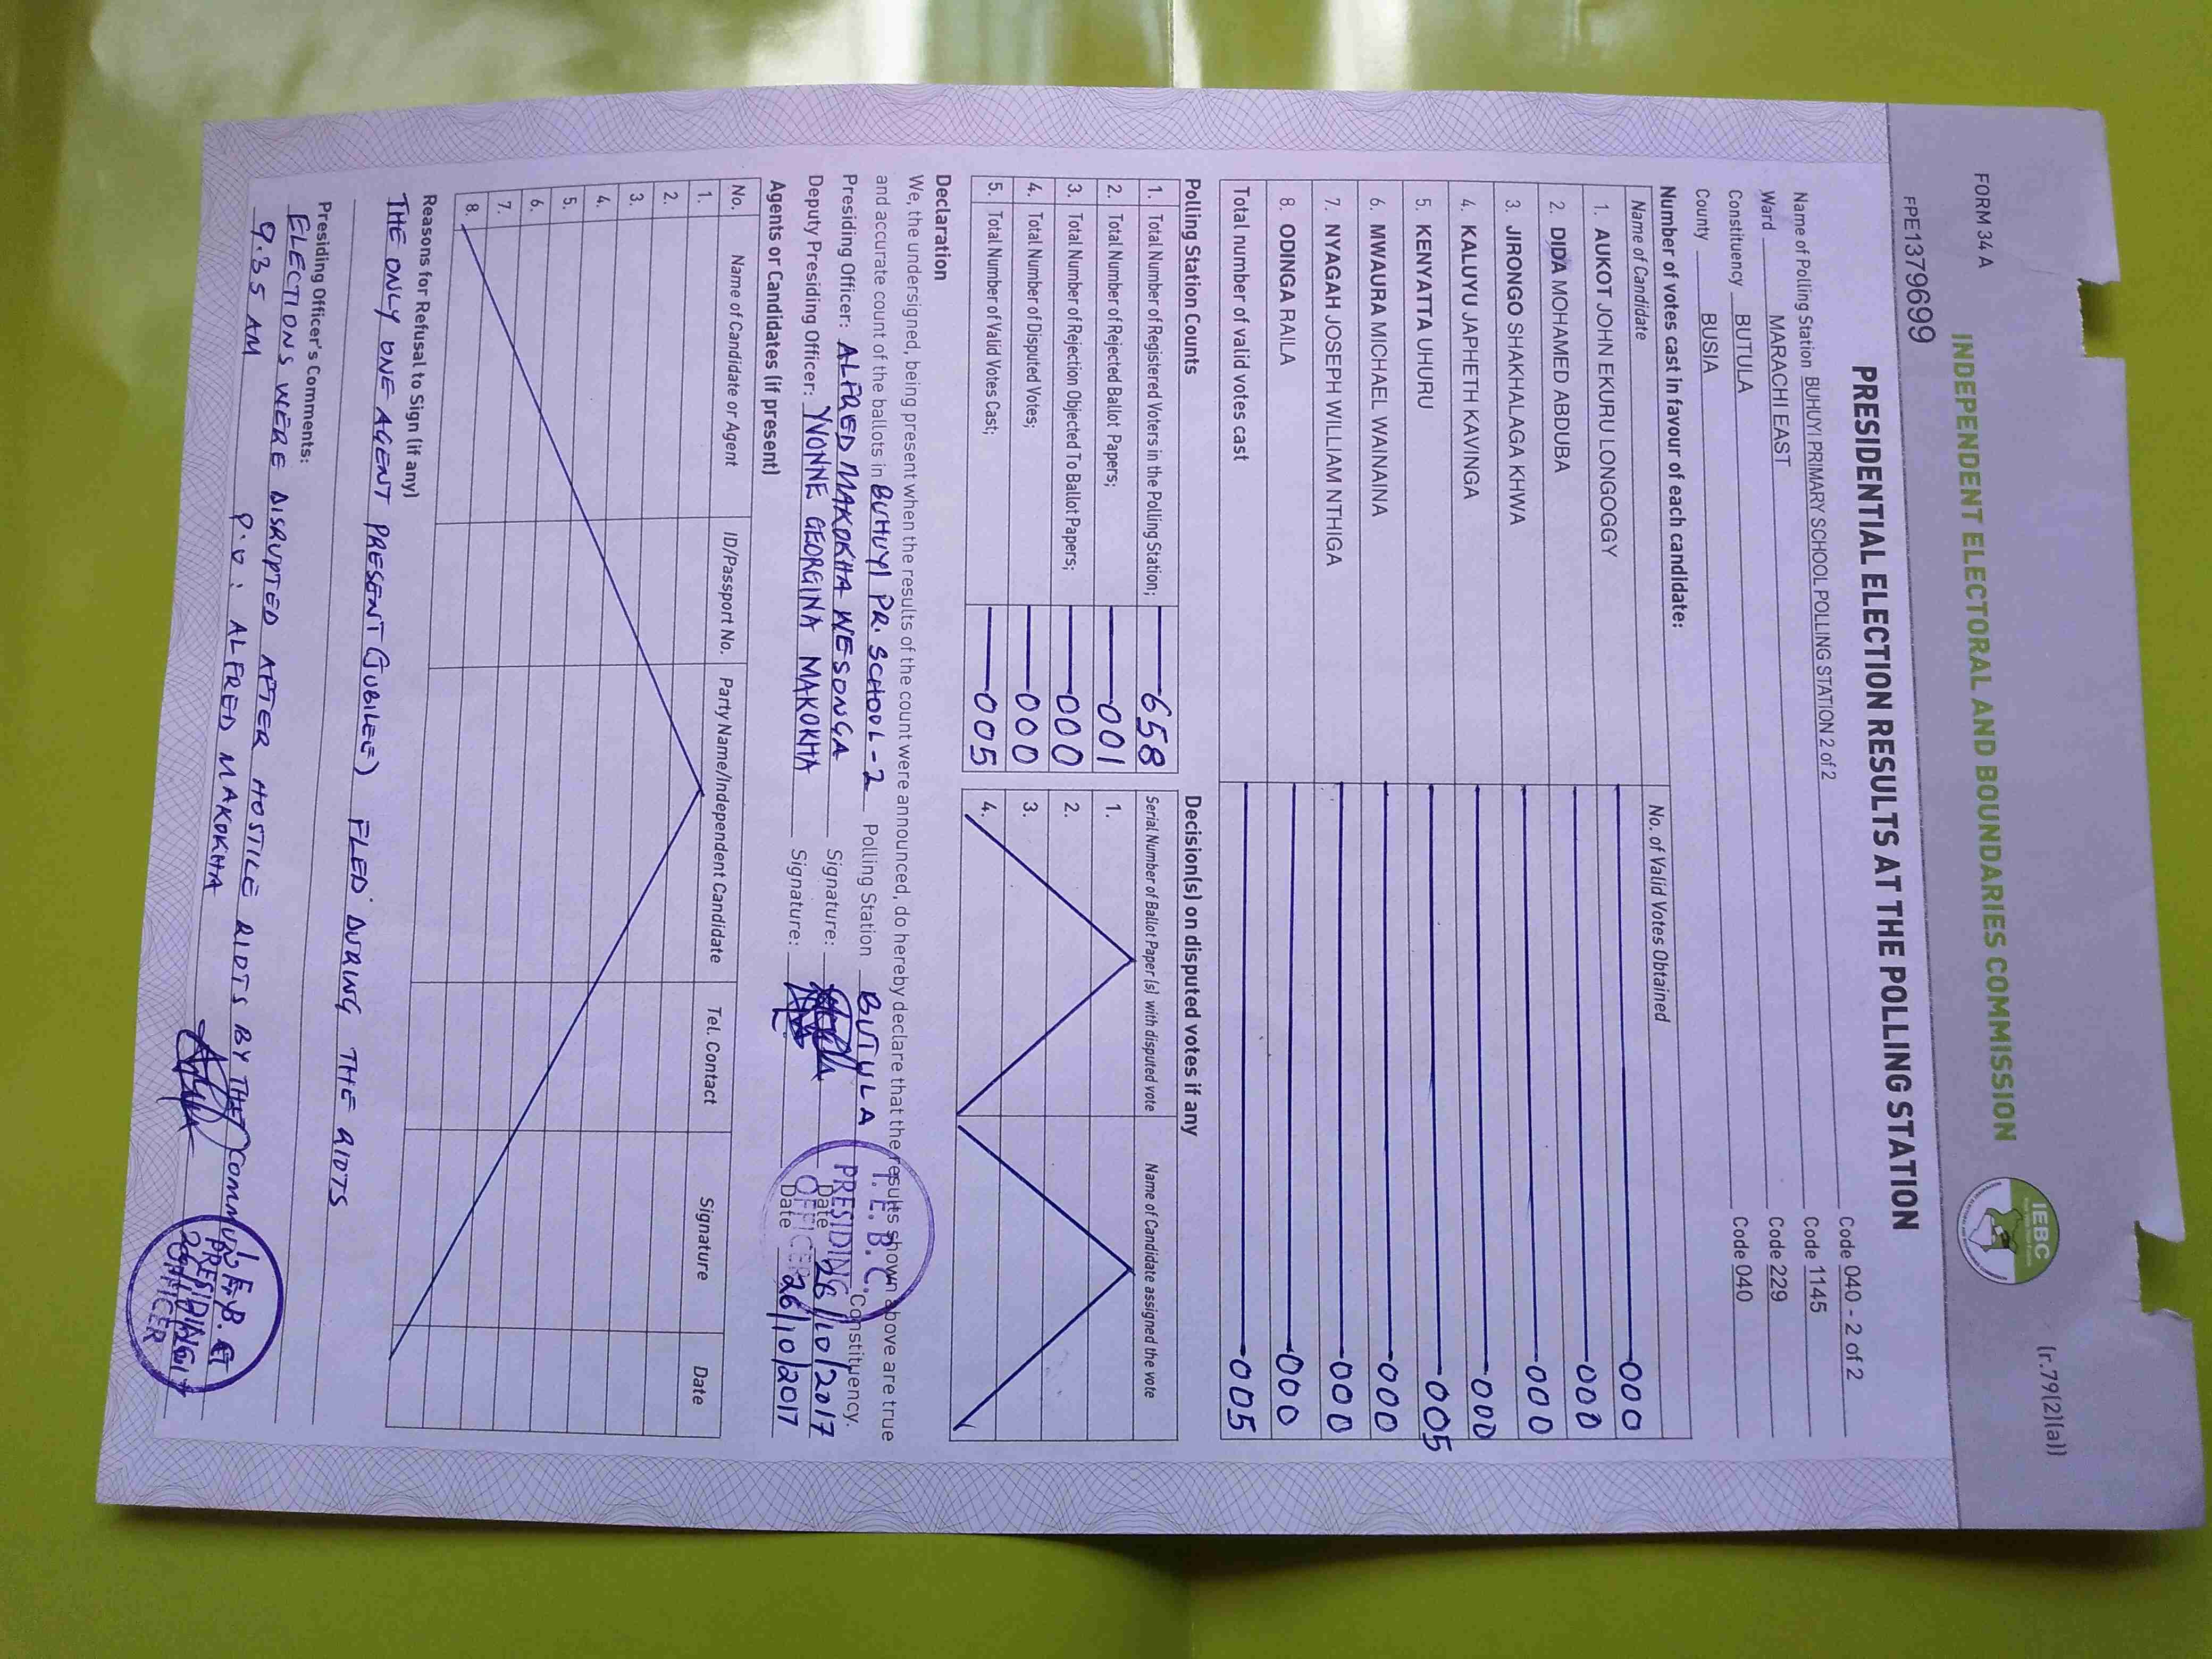 FORM 34 A
(r.79(2)(a))
INDEPENDENT ELECTORAL AND BOUNDARIES COMMISSION
IEBC
FPE1379699
PRESIDENTIAL ELECTION RESULTS AT THE POLLING STATION
Name of Polling Station BUHUYI PRIMARY SCHOOL POLLING STATION 2 of 2 Code 040 - 2 of 2
Ward MARACHI EAST Code 1145
Constituency BUTULA Code 229
County BUSIA Code 040
Number of votes cast in favour of each candidate:
Name of Candidate No. of Valid Votes Obtained
1. AUKOT JOHN EKURU LONGOGGY 000
2. DIDA MOHAMED ABDUBA 000
3. JIRONGO SHAKHALAGA KHWA 000
4. KALUYU JAPHETH KAVINGA 000
5. KENYATTA UHURU 005
6. MWAURA MICHAEL WAINAINA 000
7. NYAGAH JOSEPH WILLIAM NTHIGA 000
8. ODINGA RAILA 000
Total number of valid votes cast 005
Polling Station Counts
1. Total Number of Registered Voters in the Polling Station; 658
2. Total Number of Rejected Ballot Papers; 001
3. Total Number of Rejection Objected To Ballot Papers; 000
4. Total Number of Disputed Votes; 000
5. Total Number of Valid Votes Cast; 005
Decision(s) on disputed votes if any
Serial Number of Ballot Paper (s) with disputed vote Name of Candidate assigned the vote
1.
2.
3.
4.
Declaration
We, the undersigned, being present when the results of the count were announced, do hereby declare that the results shown above are true
and accurate count of the ballots in BUHUYI PR. SCHOOL - 2 Polling Station BUTULA Constituency.
Presiding Officer: ALFRED MAKOKHA WESONGA Signature: Date 26/10/2017
Deputy Presiding Officer: YVONNE GEORGINA MAKOKHA Signature: Date 26/10/2017
I.E.B.C.
PRESIDING
OFFICER
Agents or Candidates (if present)
No. Name of Candidate or Agent ID/Passport No. Party Name/Independent Candidate Tel. Contact Signature Date
1.
2.
3.
4.
5.
6.
7.
8.
Reasons for Refusal to Sign (if any)
THE ONLY ONE AGENT PRESENT (JUBILEE) FLED DURING THE RIOTS
Presiding Officer's Comments:
ELECTIONS WERE DISRUPTED AFTER HOSTILE RIOTS BY THE
9.35 AM
P.O: ALFRED MAKOKHA
I.E.B.C
PRESIDING
OFFICER